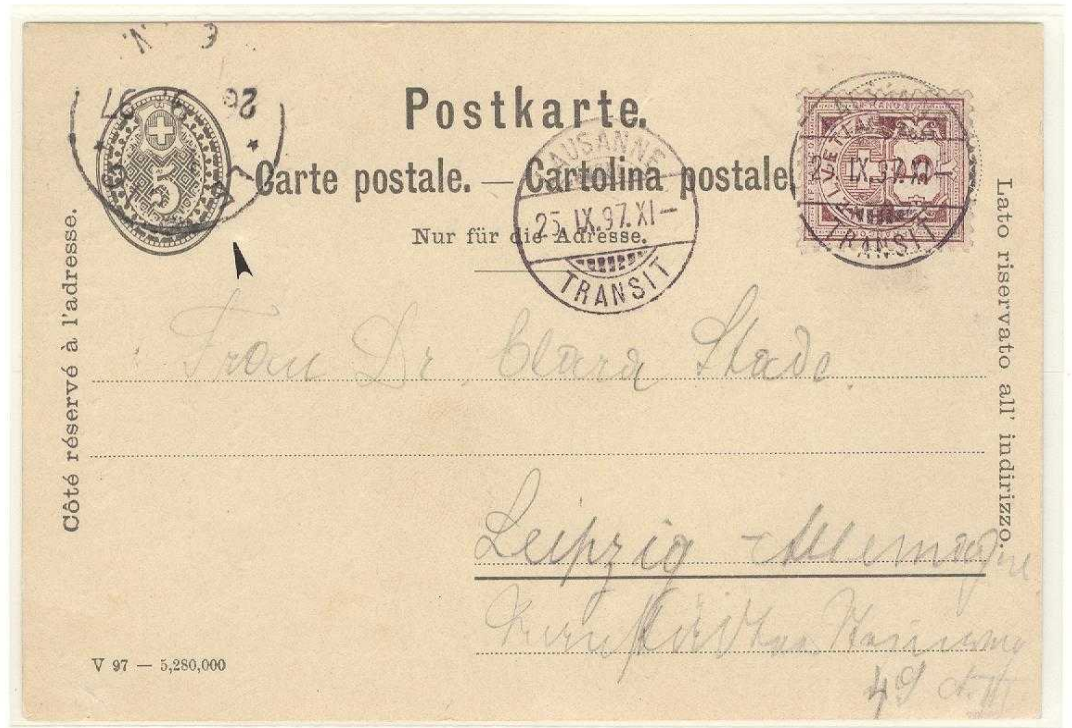 Postkarte.
Carte postale. — Cartolina postale.
Nur für die Adresse.
Côté réservé à l'adresse.
Lato riservato all' indirizzo.
5
26 97
LAUSANNE
25.IX.97.XI—
TRANSIT
HELVETIA
25.IX.97.XI—
TRANSIT
Frau Dr. Clara Stade.
Leipzig Allemagne
49
V 97 — 5,280,000